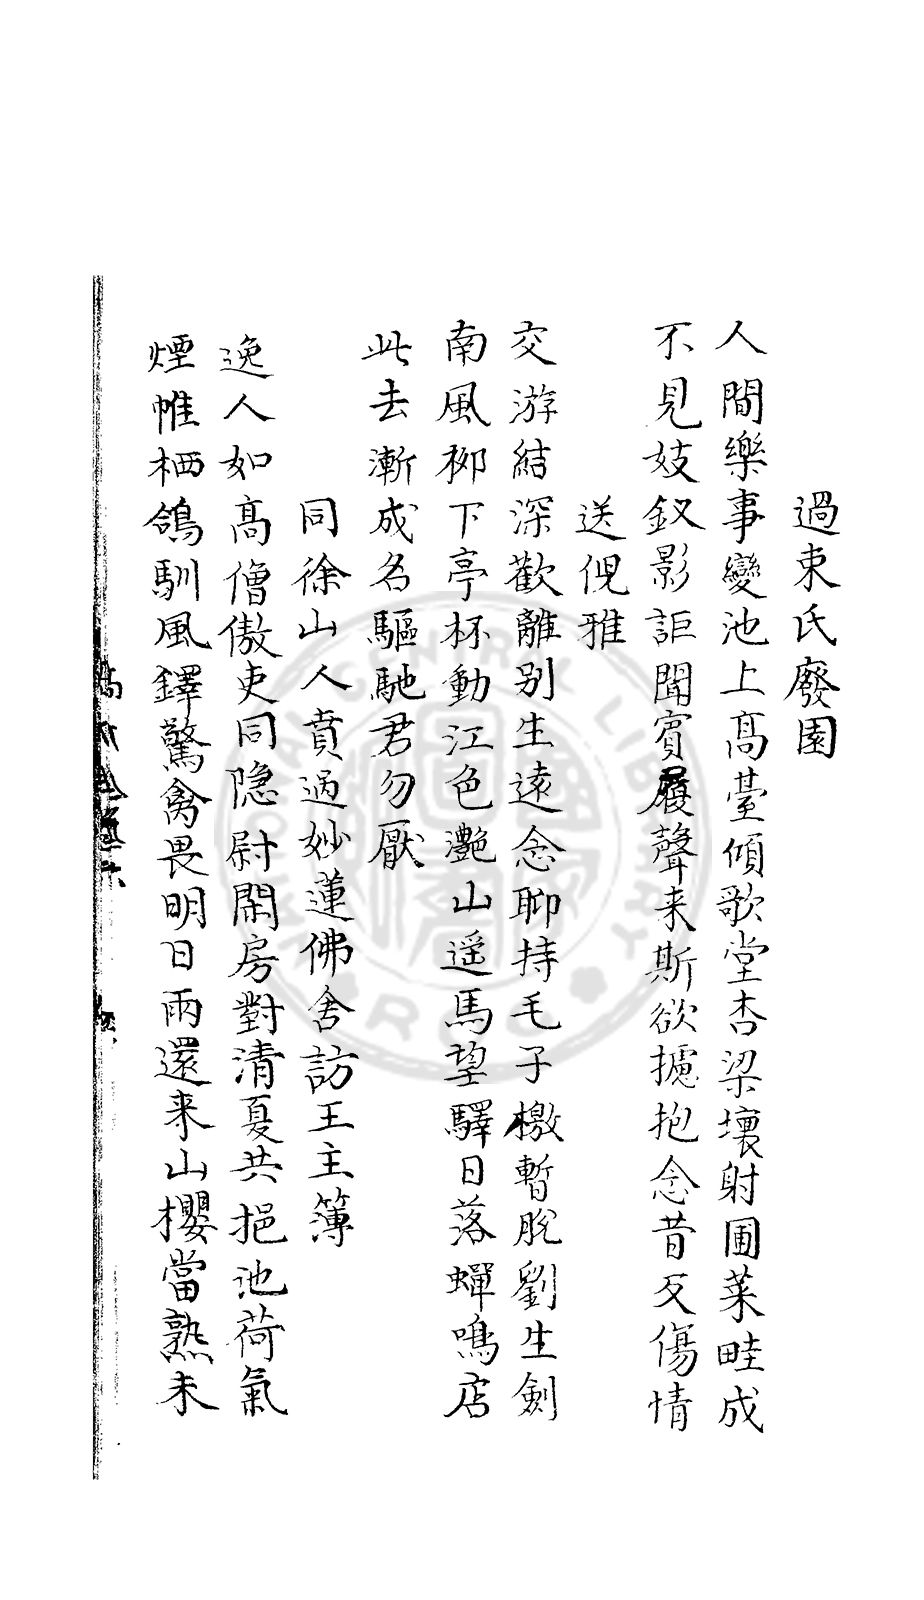 過東氏廢園
人間樂事變池上髙臺傾歌堂杏梁壞射圃菜畦成
不見妓釵影詎聞賓履聲来斯欲攄抱念昔反傷情
送倪雅
交游結深歡離别生遠念聊持毛子檄暫脫劉生劍
南風柳下亭杯動江色灩山遥馬望驛日落蟬鳴店
此去漸成名驅馳君勿厭
同徐山人賁過妙蓮佛舍訪王主簿
逸人如髙僧傲吏同隐尉閑房對清夏共挹池荷氣
煙帷栖鴿馴風鐸驚禽畏明日雨還来山櫻當熟未